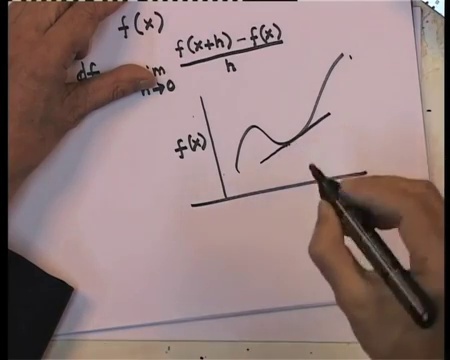 f(x)
df lim h→0 f(x+h) - f(x) / h
f(x)